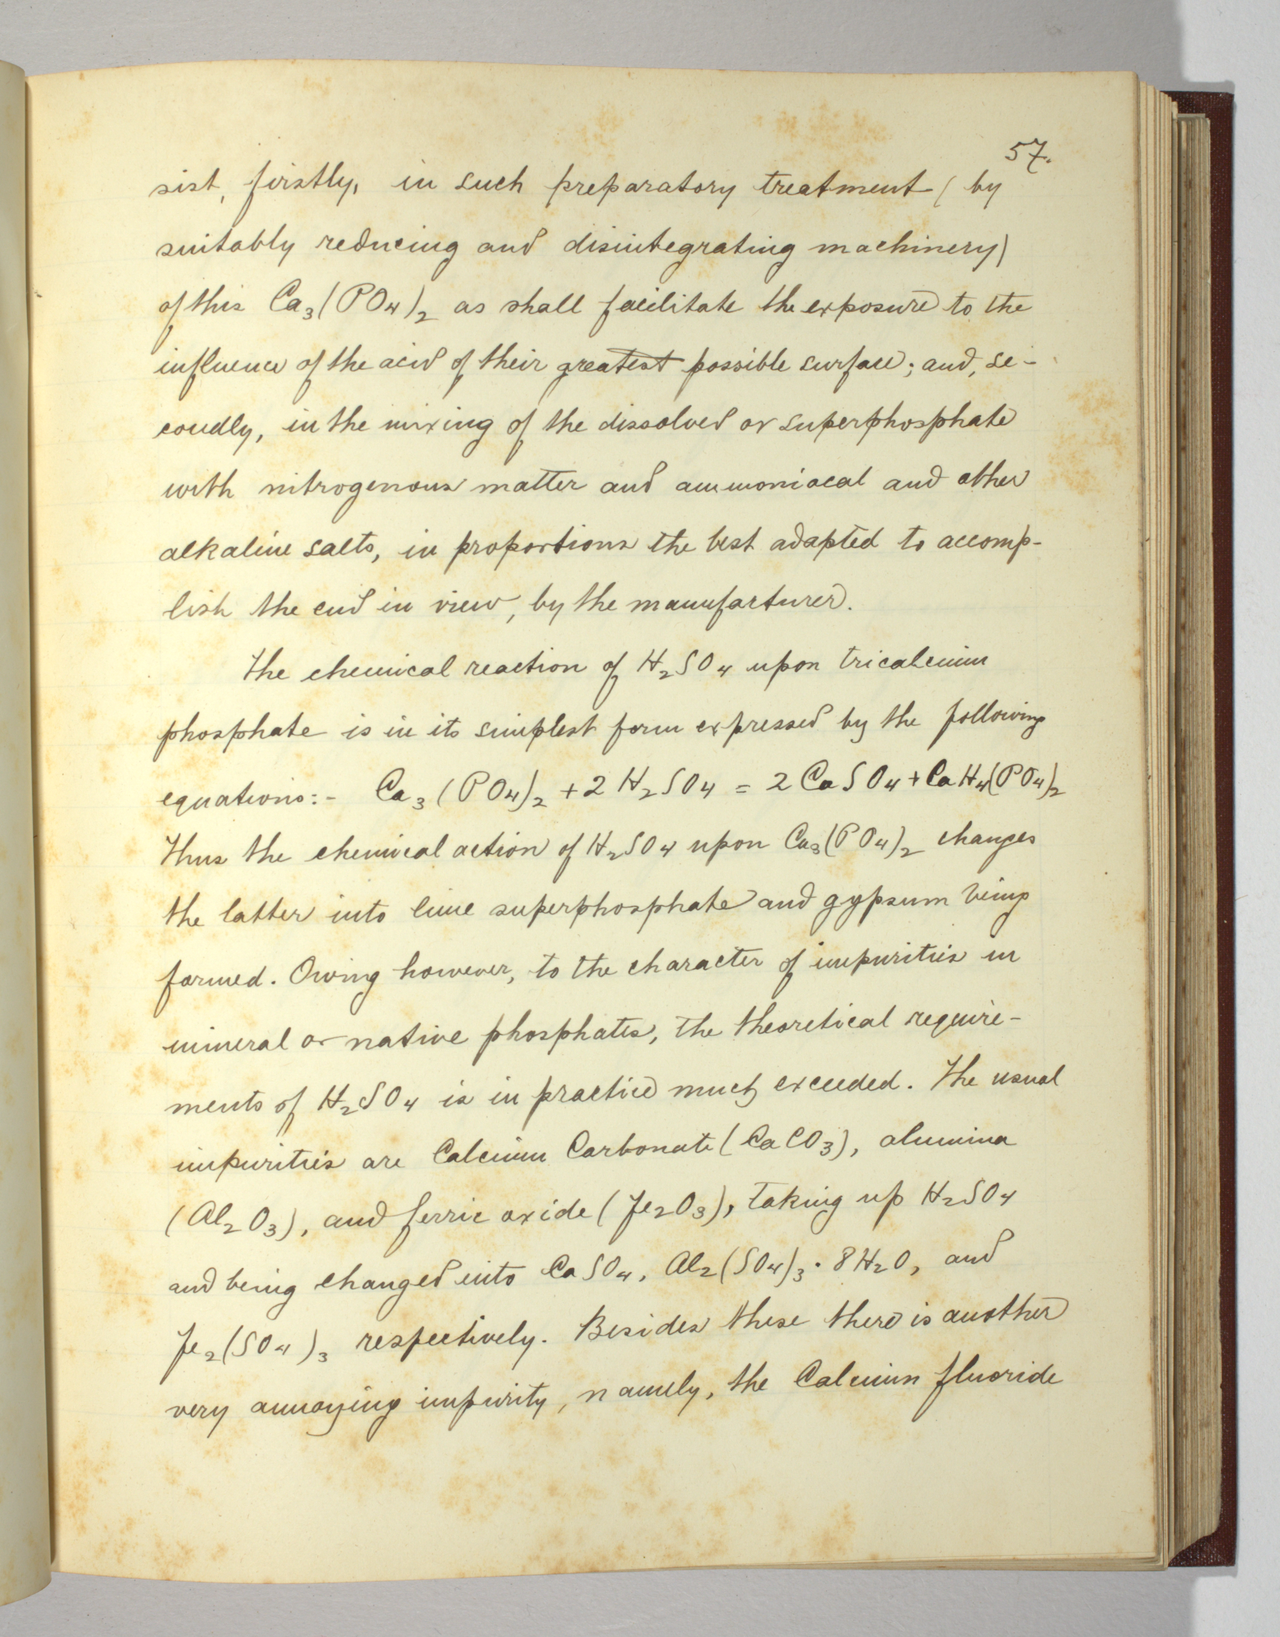 57.
sist, firstly, in such preparatory treatment (by
suitably reducing and disintegrating machinery)
of this Ca₃(PO₄)₂ as shall facilitate the exposure to the
influence of the acid of their greatest possible surface; and, se-
condly, in the mixing of the dissolved or superphosphate
with nitrogenous matter and ammoniacal and other
alkaline salts, in proportions the best adapted to accomp-
lish the end in view, by the manufacturer.
The chemical reaction of H₂SO₄ upon tricalcium
phosphate is in its simplest form expressed by the following
equations:- Ca₃(PO₄)₂ + 2 H₂SO₄ = 2 CaSO₄ + CaH₄(PO₄)₂
Thus the chemical action of H₂SO₄ upon Ca₃(PO₄)₂ changes
the latter into lime superphosphate and gypsum being
formed. Owing however, to the character of impurities in
mineral or native phosphates, the theoretical require-
ments of H₂SO₄ is in practice much exceeded. The usual
impurities are Calcium Carbonate (CaCO₃), alumina
(Al₂O₃), and ferric oxide (Fe₂O₃), taking up H₂SO₄
and being changed into CaSO₄, Al₂(SO₄)₃·8H₂O, and
Fe₂(SO₄)₃ respectively. Besides these there is another
very annoying impurity, namely, the Calcium fluoride